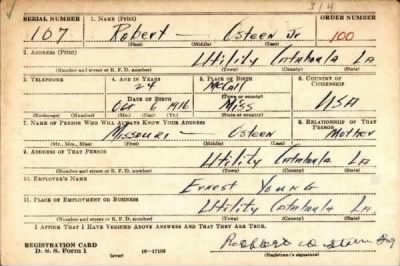 314
SERIAL NUMBER 1. NAME (Print) ORDER NUMBER
107 Robert — Osteen Jr 100
(First) (Middle) (Last)
2. ADDRESS (Print)
Utility Catahoula La
(Number and street or R. F. D. number) (Town) (County) (State)
3. TELEPHONE 4. AGE IN YEARS 5. PLACE OF BIRTH 6. COUNTRY OF CITIZENSHIP
24 McCall
DATE OF BIRTH (Town or county)
Oct 6 1916 Miss USA
(Exchange) (Number) (Mo.) (Day) (Yr.) (State or country)
7. NAME OF PERSON WHO WILL ALWAYS KNOW YOUR ADDRESS 8. RELATIONSHIP OF THAT PERSON
Missouri — Osteen Mother
(Mr., Mrs., Miss) (First) (Middle) (Last)
9. ADDRESS OF THAT PERSON
Utility Catahoula La
(Number and street or R. F. D. number) (Town) (County) (State)
10. EMPLOYER'S NAME
Ernest Young
11. PLACE OF EMPLOYMENT OR BUSINESS
Utility Catahoula La
(Number and street or R. F. D. number) (Town) (County) (State)
I AFFIRM THAT I HAVE VERIFIED ABOVE ANSWERS AND THAT THEY ARE TRUE.
REGISTRATION CARD
D. S. S. Form 1 (over) 16—17105 (Registrant's signature)